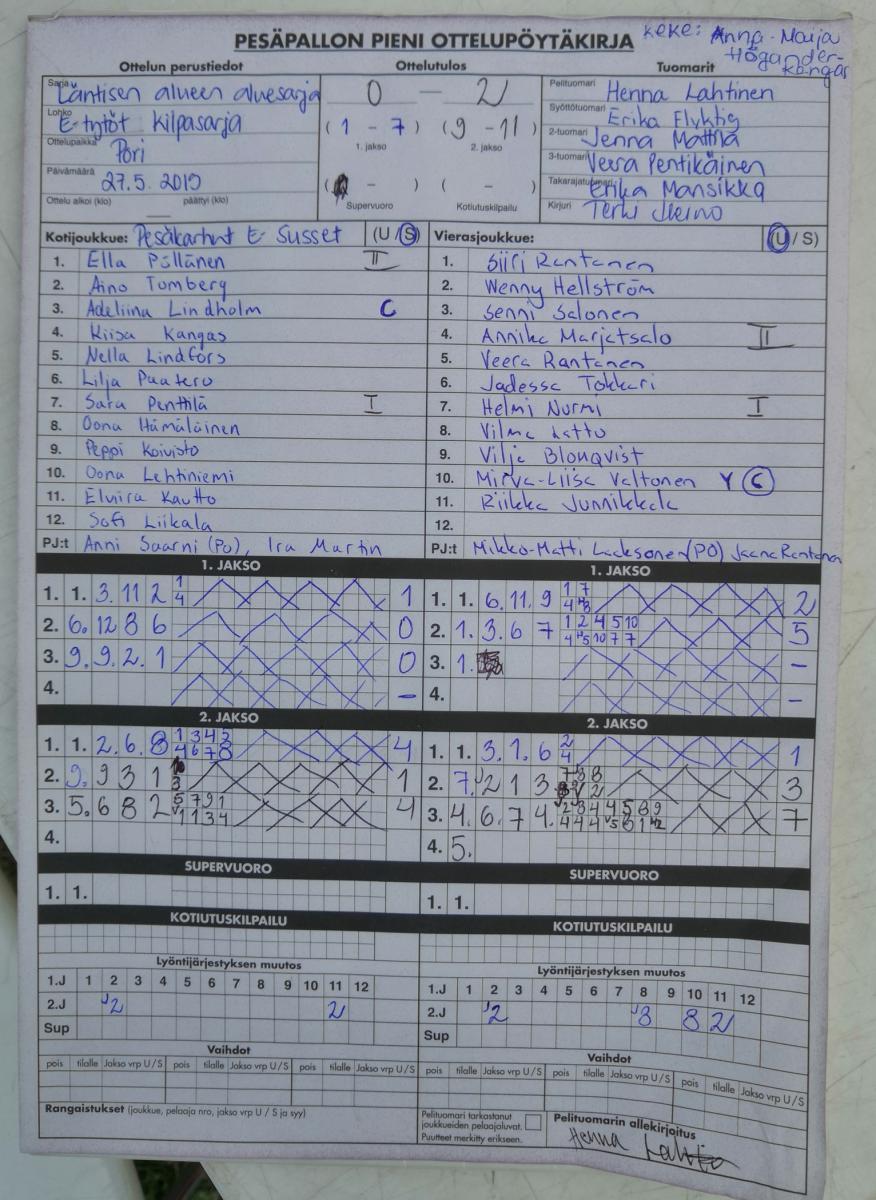 PESÄPALLON PIENI OTTELUPÖYTÄKIRJA
keke: Anna-Maija
Högander-
kangas
Ottelun perustiedot
Ottelutulos
Tuomarit
Sarja Läntisen alueen aluesarja
Lohko E-tytöt kilpasarja
Ottelupaikka Pori
Päivämäärä 27.5. 2019
Ottelu alkoi (klo) — päättyi (klo)
0 — 2
(1 - 7) (9 - 11)
1. jakso 2. jakso
( - ) ( - )
Supervuoro Kotiutuskilpailu
Pelituomari Henna Lahtinen
Syöttötuomari Erika Flyktig
2-tuomari Jenna Mattila
3-tuomari Veera Pentikäinen
Takarajatuomari Erika Mansikka
Kirjuri Terhi
Kotijoukkue: Pesäkarhut E- Susset (U / S)
1. Ella Pöllänen II
2. Aino Tomberg
3. Adeliina Lindholm C
4. Kiisa Kangas
5. Nella Lindfors
6. Lilja Paatero
7. Sara Penttilä I
8. Oona Hämäläinen
9. Peppi Koivisto
10. Oona Lehtiniemi
11. Elviira Kautto
12. Sofi Liikala
PJ:t Anni Saarni (PO), Ira Martin
Vierasjoukkue: (U / S)
1. Siiri Rantanen
2. Wenny Hellström
3. Senni Salonen
4. Annika Marjatsalo II
5. Veera Rantanen
6. Jadessa Tokkari
7. Helmi Nurmi I
8. Vilma Latto
9. Vilja Blomqvist
10. Mirva-Liisa Valtonen Y C
11. Riikka Junnikkala
12.
PJ:t Mikko-Matti Laaksonen (PO) Jaana Rantanen
1. JAKSO
1. 1. 3. 11 2 1 1
4
2. 6. 12 8 6 0
3. 9. 9. 2. 1 0
4. –
2. JAKSO
1. 1. 2. 6. 8 1 3 4 5 4
4 6 7 8
2. 9. 9 3 1 1
3
3. 5. 6 8 2 5 7 9 1 4
1 1 3 4
4.
SUPERVUORO
1. 1.
KOTIUTUSKILPAILU
Lyöntijärjestyksen muutos
1.J 1 2 3 4 5 6 7 8 9 10 11 12
2.J J2 2
Sup
Vaihdot
pois tilalle Jakso vrp U / S pois tilalle Jakso vrp U / S pois tilalle Jakso vrp U / S
Rangaistukset (joukkue, pelaaja nro, jakso vrp U / S ja syy)
1. JAKSO
1. 1. 6. 11. 9 1 7 2
4
2. 1. 3. 6 7 1 2 4 5 10 5
4 5 10 7 7
3. 1. –
4. –
2. JAKSO
1. 1. 3. 1. 6 2 1
4
2. 7. J2 1 3 7 8 3
2
3. 4. 6. 7 4. 7
4. 5.
SUPERVUORO
1. 1.
KOTIUTUSKILPAILU
Lyöntijärjestyksen muutos
1.J 1 2 3 4 5 6 7 8 9 10 11 12
2.J J2 J8 8 2
Sup
Vaihdot
pois tilalle Jakso vrp U / S pois tilalle Jakso vrp U / S pois tilalle Jakso vrp U / S
Pelituomari tarkastanut
joukkueiden pelaajaluvat.
Puutteet merkitty erikseen.
Pelituomarin allekirjoitus
Henna Lahtinen